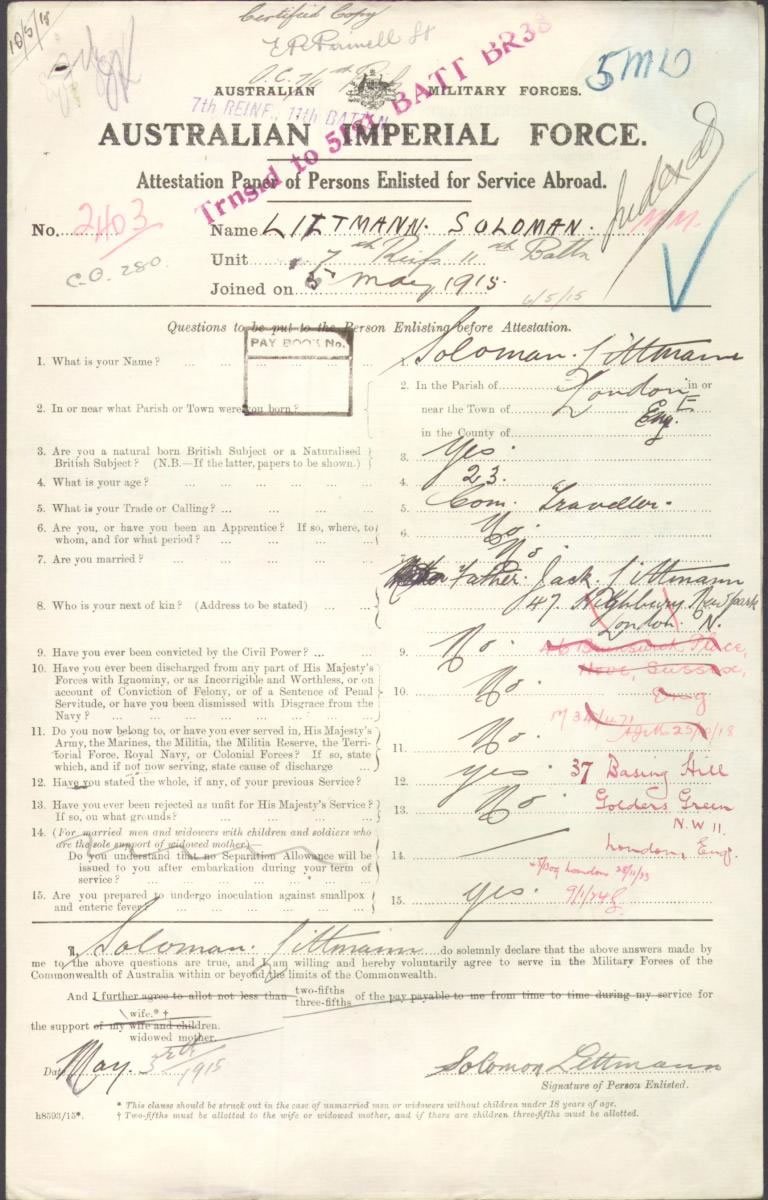 10/5/15
Certified Copy
5MD
AUSTRALIAN MILITARY FORCES.
7th REINF., 11th BATTN
Trnsfd to 51st BATT BR38
AUSTRALIAN IMPERIAL FORCE.
Attestation Paper of Persons Enlisted for Service Abroad.
Indexed
No. 2403 Name LITTMANN. SOLOMAN. M.M.
C.O. 280 Unit 7th Reifs 11th Battn
Joined on 5 May 1915.
6/5/15
Questions to be put to the Person Enlisting before Attestation.
PAY BOOK No.
1. What is your Name? ... 1. Soloman. Littmann
2. In or near what Parish or Town were you born? ... 2. In the Parish of London in or
near the Town of
in the County of Eng.
3. Are you a natural born British Subject or a Naturalised
British Subject? (N.B.—If the latter, papers to be shown.) 3. Yes.
4. What is your age? ... 4. 23.
5. What is your Trade or Calling? ... 5. Com. Traveller.
6. Are you, or have you been an Apprentice? If so, where, to
whom, and for what period? ... 6. No.
7. Are you married? ... 7. No.
8. Who is your next of kin? (Address to be stated) ... Father. Jack. Littmann
47. Highbury New park
London N.
9. Have you ever been convicted by the Civil Power? ... 9. No.
Place,
Hove, Sussex,
Eng
10. Have you ever been discharged from any part of His Majesty's
Forces with Ignominy, or as Incorrigible and Worthless, or on
account of Conviction of Felony, or of a Sentence of Penal
Servitude, or have you been dismissed with Disgrace from the
Navy? ... 10. No.
11. Do you now belong to, or have you ever served in, His Majesty's
Army, the Marines, the Militia, the Militia Reserve, the Terri-
torial Force, Royal Navy, or Colonial Forces? If so, state
which, and if not now serving, state cause of discharge 11. No.
12. Have you stated the whole, if any, of your previous Service? 12. yes. 37 Basing Hill
13. Have you ever been rejected as unfit for His Majesty's Service?
If so, on what grounds? ... 13. No. Golders Green
N.W 11.
London, Eng.
14. (For married men and widowers with children and soldiers who
are the sole support of widowed mother)—
Do you understand that no Separation Allowance will be
issued to you after embarkation during your term of
service? ... 14.
15. Are you prepared to undergo inoculation against smallpox
and enteric fever? ... 15. Yes.
I, Soloman. Littmann do solemnly declare that the above answers made by
me to the above questions are true, and I am willing and hereby voluntarily agree to serve in the Military Forces of the
Commonwealth of Australia within or beyond the limits of the Commonwealth.
And I further agree to allot not less than two-fifths three-fifths of the pay payable to me from time to time during my service for
wife.* †
the support of my wife and children.
widowed mother.
Date May. 5th 1915
Solomon Littmann
Signature of Person Enlisted.
* This clause should be struck out in the case of unmarried men or widowers without children under 18 years of age.
h8593/15*. † Two-fifths must be allotted to the wife or widowed mother, and if there are children three-fifths must be allotted.